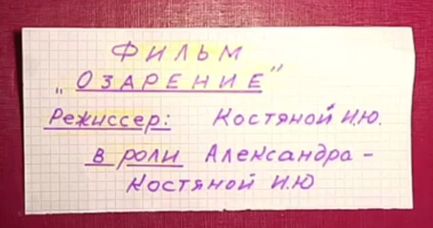 ФИЛЬМ
„ОЗАРЕНИЕ"
Режиссер: Костяной И.Ю.
в роли Александра -
Костяной И.Ю